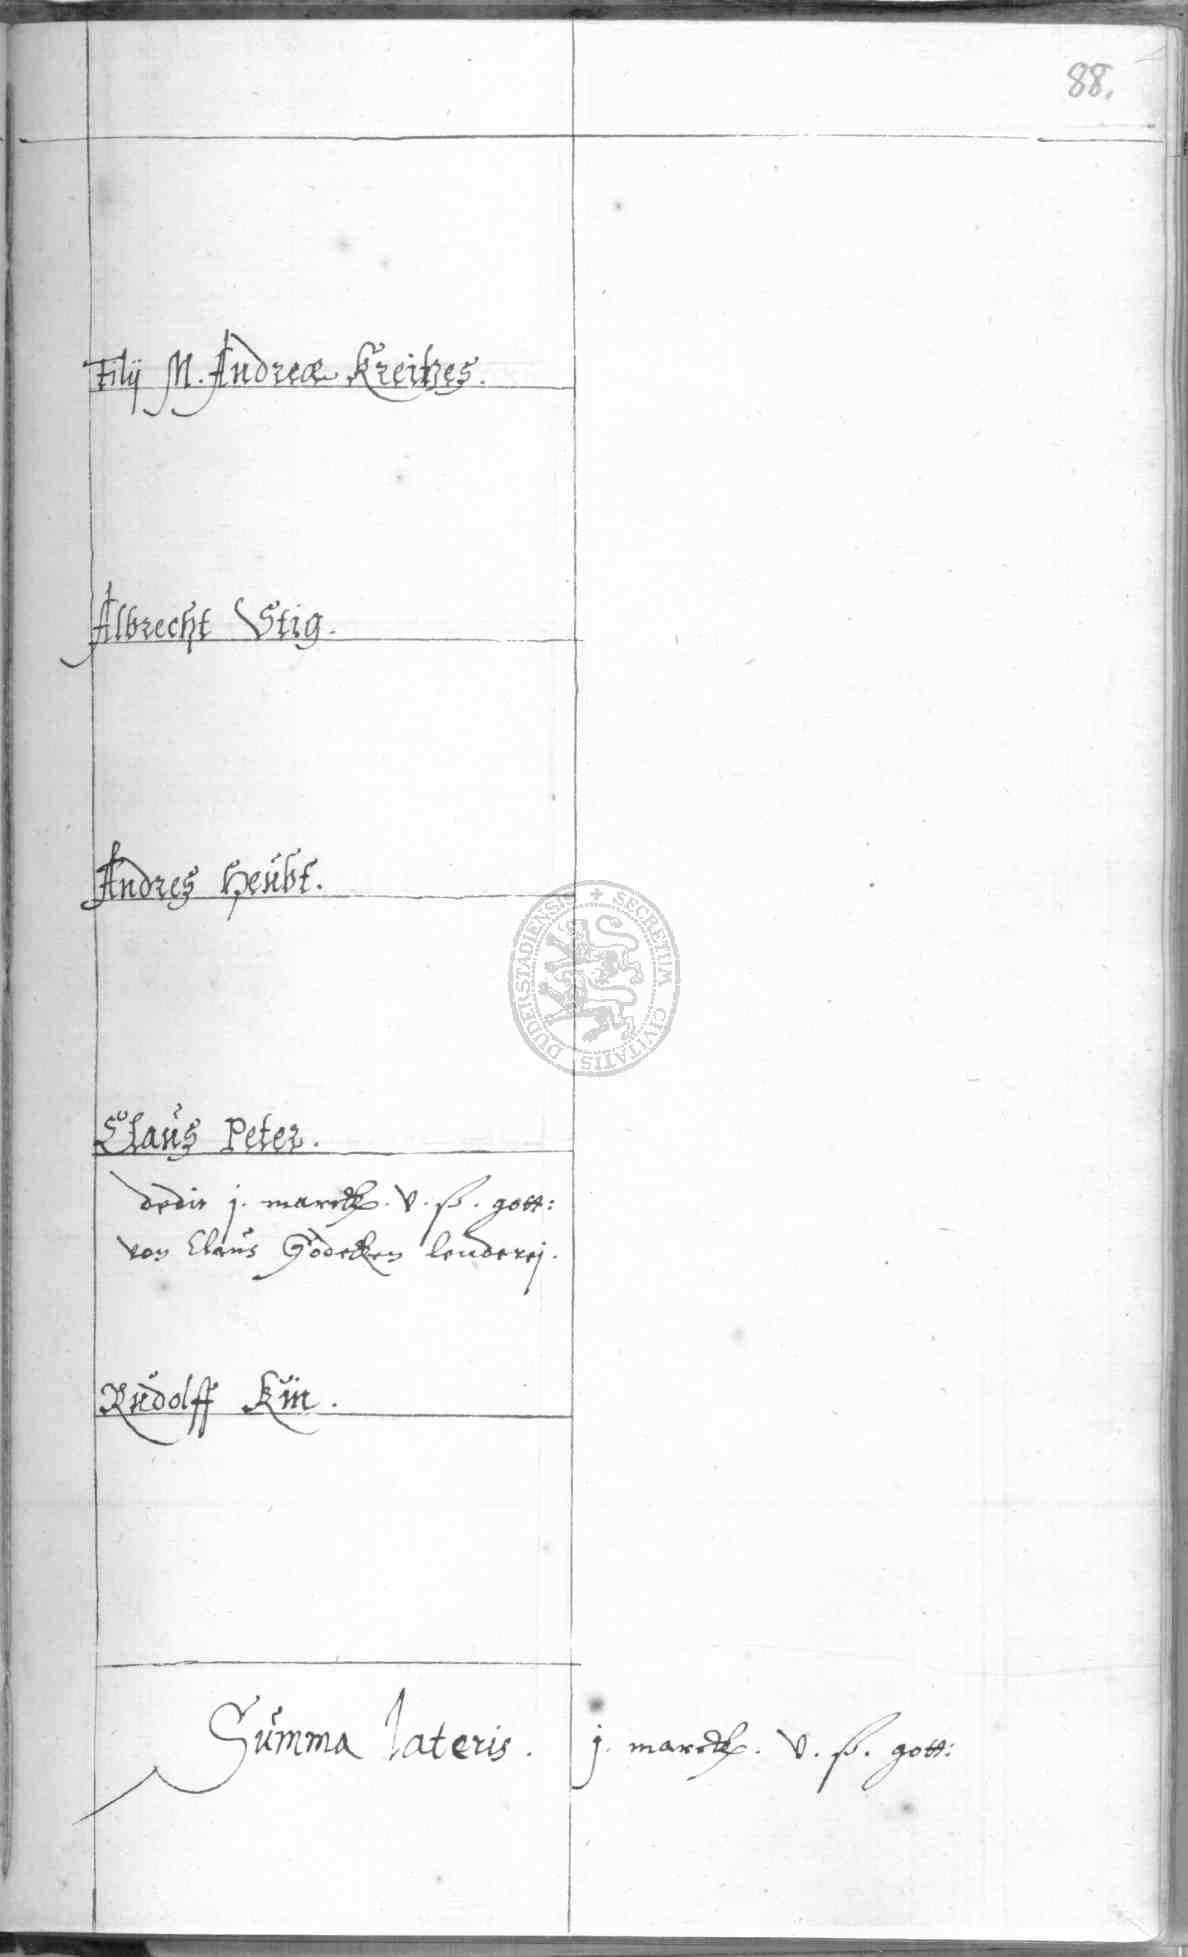 88.
Filij M. Andreæ Kreitzes.
Albrecht Vstig.
Andres Heübt.
Claüs Peter.
dedit j. marck. v. ß. gott:
von Claüs Gödecken lenderej.
Rüdolff Kün.
Sümma lateris. j. marck. v. ß. gott:
SECRETUM CIVITATIS DUDERSTADIENSIS